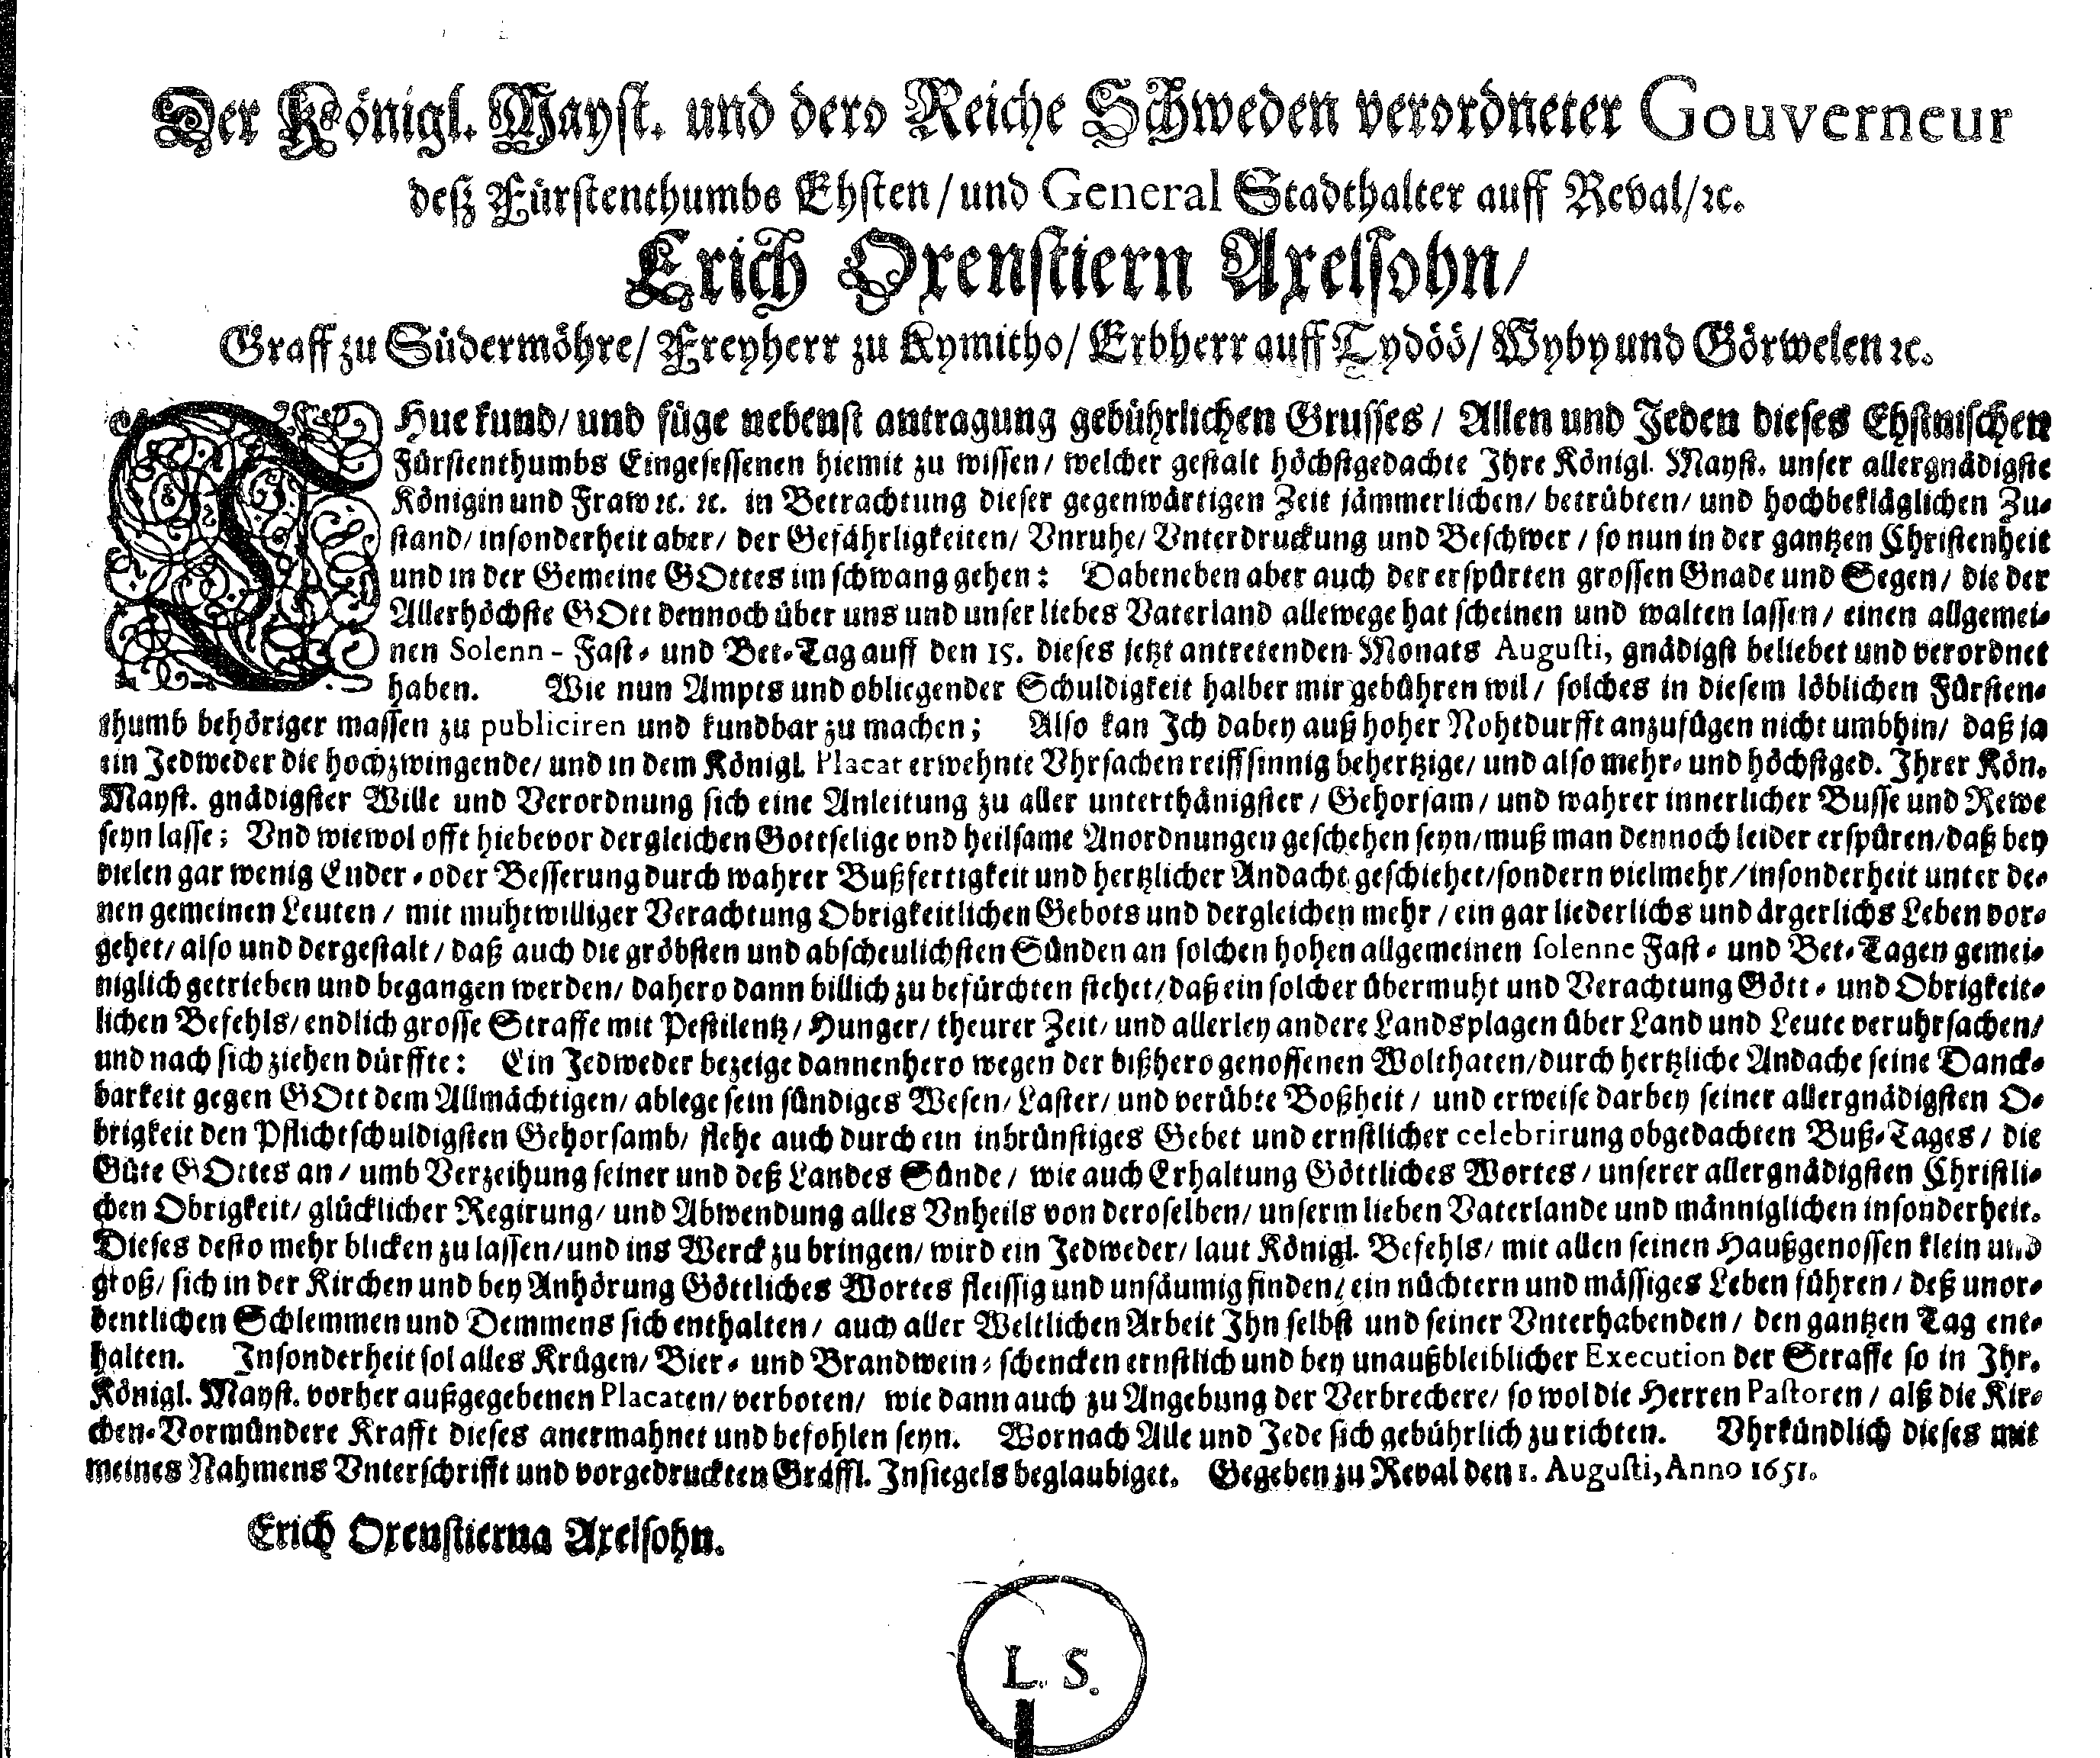 Der Königl. Mayst. und dero Reiche Schweden verordneter Gouverneur
deß Fürstenthumbs Ehsten / und General Stadthalter auff Reval / ꝛc.
Erich Oxenstiern Axelsohn /
Graff zu Südermöhre / Freyherr zu Kymitho / Erbherr auff Tydöö / Wyby und Görwelen ꝛc.
THue kund / und füge nebenst antragung gebührlichen Grusses / Allen und Jeden dieses Ehstnischen
Fürstenthumbs Eingesessenen hiemit zu wissen / welcher gestalt höchstgedachte Ihre Königl. Mayst. unser allergnädigste
Königin und Fraw ꝛc. ꝛc. in Betrachtung dieser gegenwärtigen Zeit jämmerlichen / betrübten / und hochbekläglichen Zu-
stand / insonderheit aber / der Gefährligkeiten / Vnruhe / Vnterdruckung und Beschwer / so nun in der gantzen Christenheit
und in der Gemeine GOttes im schwang gehen: Dabeneben aber auch der erspürten grossen Gnade und Segen / die der
Allerhöchste GOtt dennoch über uns und unser liebes Vaterland allewege hat scheinen und walten lassen / einen allgemei-
nen Solenn - Fast- und Bet-Tag auff den 15. dieses jetzt antretenden Monats Augusti, gnädigst beliebet und verordnet
haben. Wie nun Ampts und obliegender Schuldigkeit halber mir gebühren wil / solches in diesem löblichen Fürsten-
thumb behöriger massen zu publiciren und kundbar zu machen; Also kan Ich dabey auß hoher Nohtdurfft anzufügen nicht umbhin / daß ja
ein Jedweder die hochzwingende / und in dem Königl. Placat erwehnte Vhrsachen reiffsinnig behertzige / und also mehr- und höchstged. Ihrer Kön.
Mayst. gnädigster Wille und Verordnung sich eine Anleitung zu aller unterthänigster / Gehorsam / und wahrer innerlicher Busse und Rewe
seyn lasse; Vnd wiewol offt hiebevor dergleichen Gottselige vnd heilsame Anordnungen geschehen seyn / muß man dennoch leider erspüren / daß bey
vielen gar wenig Ender- oder Besserung durch wahrer Bußfertigkeit und hertzlicher Andacht geschiehet / sondern vielmehr / insonderheit unter de-
nen gemeinen Leuten / mit muhtwilliger Verachtung Obrigkeitlichen Gebots und dergleichen mehr / ein gar liederlichs und ärgerlichs Leben vor-
gehet / also und dergestalt / daß auch die gröbsten und abscheulichsten Sünden an solchen hohen allgemeinen solenne Fast- und Bet-Tagen gemei-
niglich getrieben und begangen werden / dahero dann billich zu befürchten stehet / daß ein solcher übermuht und Verachtung Gött- und Obrigkeit-
lichen Befehls / endlich grosse Straffe mit Pestilentz / Hunger / theurer Zeit / und allerley andere Landsplagen über Land und Leute veruhrsachen /
und nach sich ziehen dürffte: Ein Jedweder bezeige dannenhero wegen der bißhero genossenen Wolthaten / durch hertzliche Andache seine Danck-
barkeit gegen GOtt dem Allmächtigen / ablege sein sündiges Wesen / Laster / und verübte Boßheit / und erweise darbey seiner allergnädigsten O-
brigkeit den Pflichtschuldigsten Gehorsamb / flehe auch durch ein inbrünstiges Gebet und ernstlicher celebrirung obgedachten Buß-Tages / die
Güte GOttes an / umb Verzeihung seiner und deß Landes Sünde / wie auch Erhaltung Göttliches Wortes / unserer allergnädigsten Christli-
chen Obrigkeit / glücklicher Regirung / und Abwendung alles Vnheils von deroselben / unserm lieben Vaterlande und männiglichen insonderheit.
Dieses desto mehr blicken zu lassen / und ins Werck zu bringen / wird ein Jedweder / laut Königl. Befehls / mit allen seinen Haußgenossen klein und
groß / sich in der Kirchen und bey Anhörung Göttliches Wortes fleissig und unsäumig finden / ein nüchtern und mässiges Leben führen / deß unor-
dentlichen Schlemmen und Demmens sich enthalten / auch aller Weltlichen Arbeit Ihn selbst und seiner Vnterhabenden / den gantzen Tag ent-
halten. Insonderheit sol alles Krügen / Bier- und Brandwein-schencken ernstlich und bey unaußbleiblicher Execution der Straffe so in Ihr.
Königl. Mayst. vorher außgegebenen Placaten / verboten / wie dann auch zu Angebung der Verbrechere / so wol die Herren Pastoren / alß die Kir-
chen-Vormündere Krafft dieses anermahnet und befohlen seyn. Wornach Alle und Jede sich gebührlich zu richten. Vhrkündlich dieses mit
meines Nahmens Vnterschrifft und vorgedruckten Gräffl. Insiegels beglaubiget. Gegeben zu Reval den 1. Augusti, Anno 1651.
Erich Oxenstierna Axelsohn.
L. S.